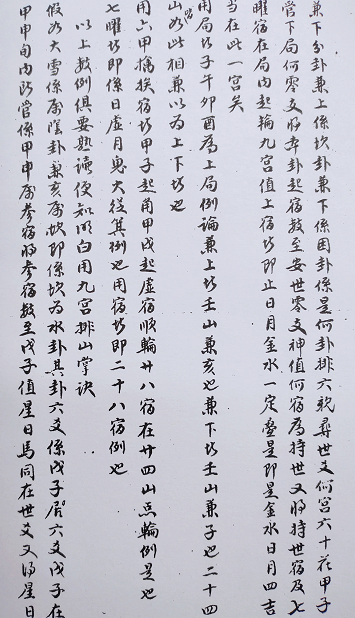 兼下分卦兼上係坎卦兼下係困卦係是何卦排六親尋世爻何宮六十花甲子
管下局何零支將本卦起宿数至安世零支神值何宿為持世又將持世宿及七
曜宿在局内起輪九宮值上宿坊即止日月金水一定盤是即是金水日月四吉
当在此一宮矣
用局坊子午卯酉為上局例論兼上坊壬山兼亥也兼下坊壬山兼子也二十四
山如此相兼以為上下坊也
用六甲擒挨宿坊甲子起角甲戌起虚宿順輪廿八宿在廿四山点輪例是也
七曜坊即係日虚月鬼火従其例也用宿坊即二十八宿例也
以上数例俱要熟讀便知明白用九宮排山掌訣
假如大雪係属陰卦兼亥属坎即係坎為水卦其卦六爻係戊子居六爻戊子在
甲申旬内所管係甲申属参宿將参宿数至戊子值星日馬同在世爻又將星日